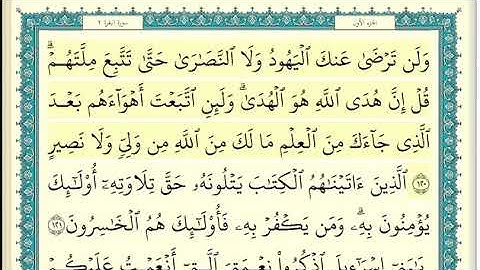 الجزء الأول سورة البقرة ٢
وَلَن تَرۡضَىٰ عَنكَ ٱلۡيَهُودُ وَلَا ٱلنَّصَٰرَىٰ حَتَّىٰ تَتَّبِعَ مِلَّتَهُمۡۗ
قُلۡ إِنَّ هُدَى ٱللَّهِ هُوَ ٱلۡهُدَىٰۗ وَلَئِنِ ٱتَّبَعۡتَ أَهۡوَآءَهُم بَعۡدَ
ٱلَّذِي جَآءَكَ مِنَ ٱلۡعِلۡمِ مَا لَكَ مِنَ ٱللَّهِ مِن وَلِيّٖ وَلَا نَصِيرٍ
١٢٠ ٱلَّذِينَ ءَاتَيۡنَٰهُمُ ٱلۡكِتَٰبَ يَتۡلُونَهُۥ حَقَّ تِلَاوَتِهِۦٓ أُوْلَٰٓئِكَ
يُؤۡمِنُونَ بِهِۦۗ وَمَن يَكۡفُرۡ بِهِۦ فَأُوْلَٰٓئِكَ هُمُ ٱلۡخَٰسِرُونَ ١٢١
يَٰبَنِيٓ إِسۡرَٰٓءِيلَ ٱذۡكُرُواْ نِعۡمَتِيَ ٱلَّتِيٓ أَنۡعَمۡتُ عَلَيۡكُمۡ